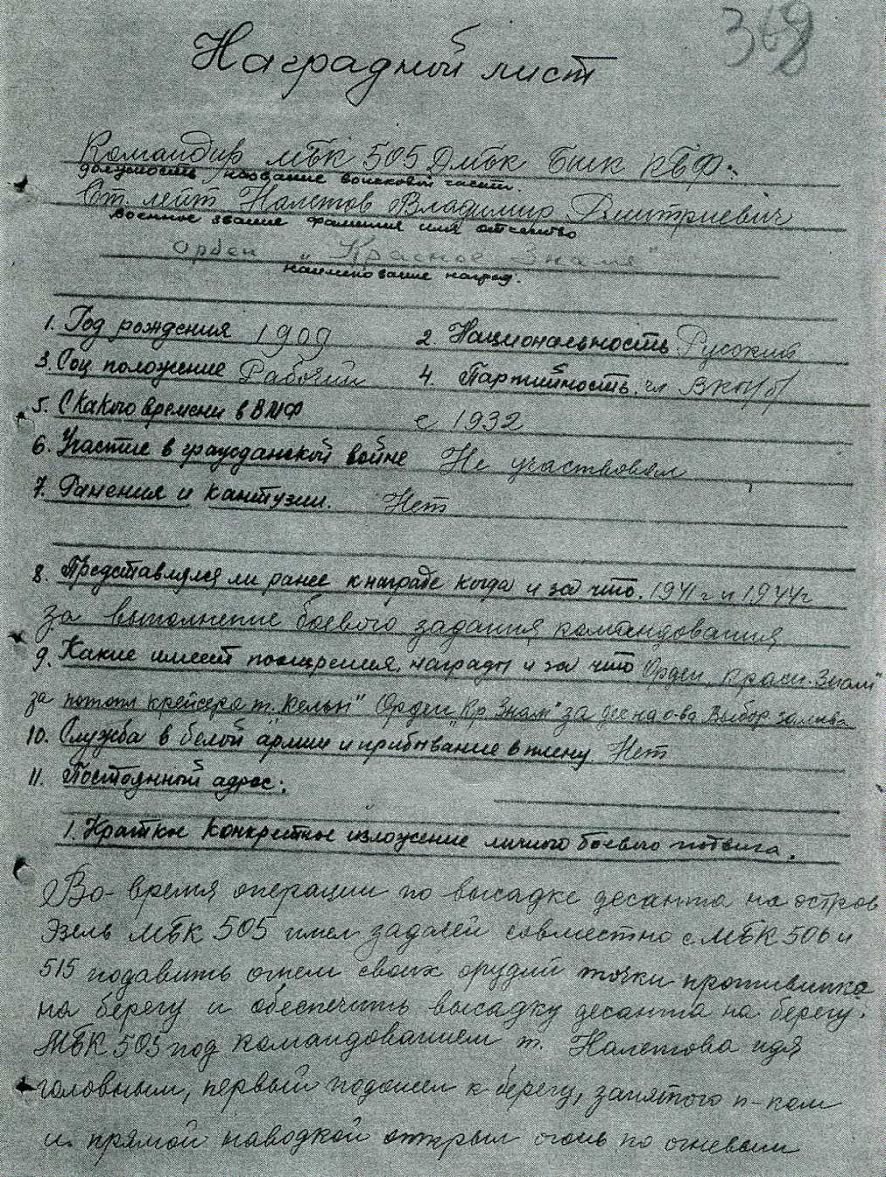 368
Наградной лист
Командир МБК 505 ДМБК Бшк КБФ.
должность название воинской части.
Ст. лейт Налетов Владимир Дмитриевич
военное звание фамилия имя отчество
Орден „Красное Знамя"
наименование наград.
1. Год рождения 1909 2. Национальность Русский
3. Соц положение Рабочий 4. Партийность. чл ВКП/б/
5. С какого времени в ВМФ с 1932
6. Участие в гражданской войне Не участвовал
7. Ранения и кантузии. Нет
8. Представлялся ли ранее к награде когда и за что. 1941 г и 1944г
за выполнение боевого задания командования
9. Какие имеет поощрения, награды и за что Орден „Красн. Знам"
за потопл крейсера т. „Кельн" Орден „Кр Знам" за десн о-ва Выбор залива
10. Служба в белой армии и прибывание в плену Нет
11. Постоянный адрес:
1. Краткое конкретное изложение личного боевого подвига.
Во время операции по высадке десанта на остров
Эзель МБК 505 имел задачей совместно с МБК 506 и
515 подавить огнем своих орудий точки противника
на берегу и обеспечить высадку десанта на берегу.
МБК 505 под командованием т. Налетова идя
головным, первый подошел к берегу, занятого п-ком
и прямой наводкой открыл огонь по огневым